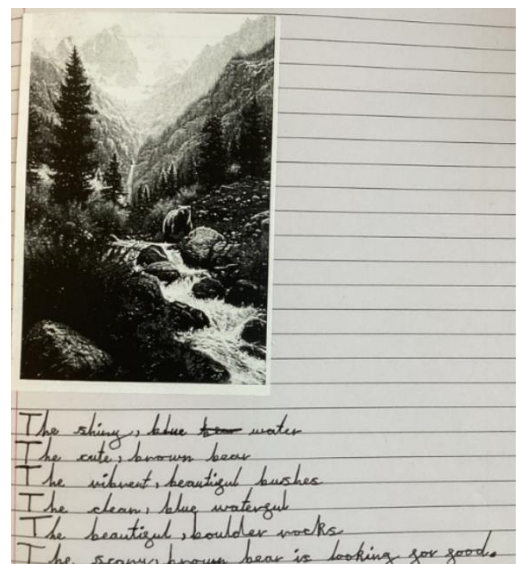 The shiny, blue water
The cute, brown bear
The vibrent, beautiful bushes
The clean, blue waterful
The beautiful, boulder rocks
The scary, brown bear is looking for food.